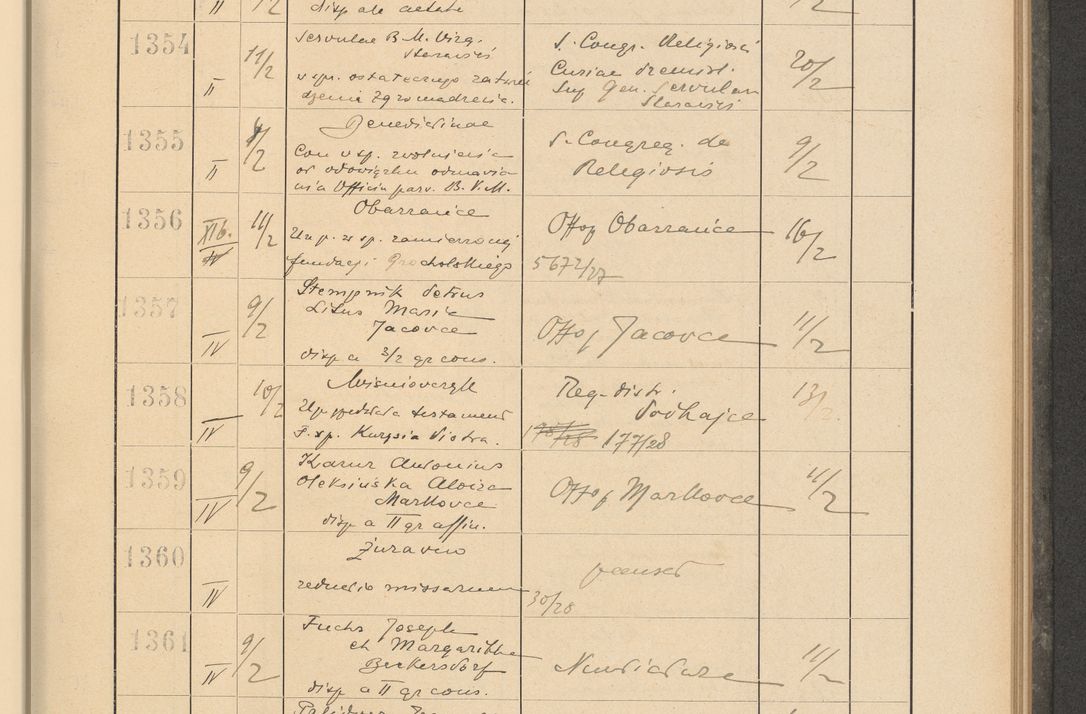 II 1/2 disp ab aetate 1/2
1354 II 11/2 Servulae B. M. Virg.
Staraviś
w spr. ostatecznego zatwier
dzenia Zgromadzenia.
S. Congr. Religiosi
Curiae
Sup Gen. Servularum
Staraviś
20/2
1355 II 9/2 Benedictinae
Con w sp. zwolnienia
od obowiązku odmawia
nia Officii parv. B. V. M.
S. Congreg. de
Religiosis
9/2
1356 XIb. IV 11/2 Obarzańce
Urz p. w sp. zamierzonej
fundacji Grocholskiego
Offof Obarzańce
5672/27
16/2
1357 IV 9/2 Stempnik Petrus
Litus Maria
Jacovce
disp a 3/2 gr cons.
Offof Jacovce
11/2
1358 IV 10/2 Wiśniovczyk
testament
ś. sp. Kurysia Piotra.
Reg. distr.
Podhajce
177/28
13/2
1359 IV 9/2 Karur Antonius
Oleksińska Aloiza
Markovce
disp a II gr affin.
Offof Markovce
11/2
1360 IV Żuravno
reductio missarum
30/28
1361 IV 9/2 Fuchs Joseph
et Margaritha
Beckersdorf
disp a II gr cons.
11/2